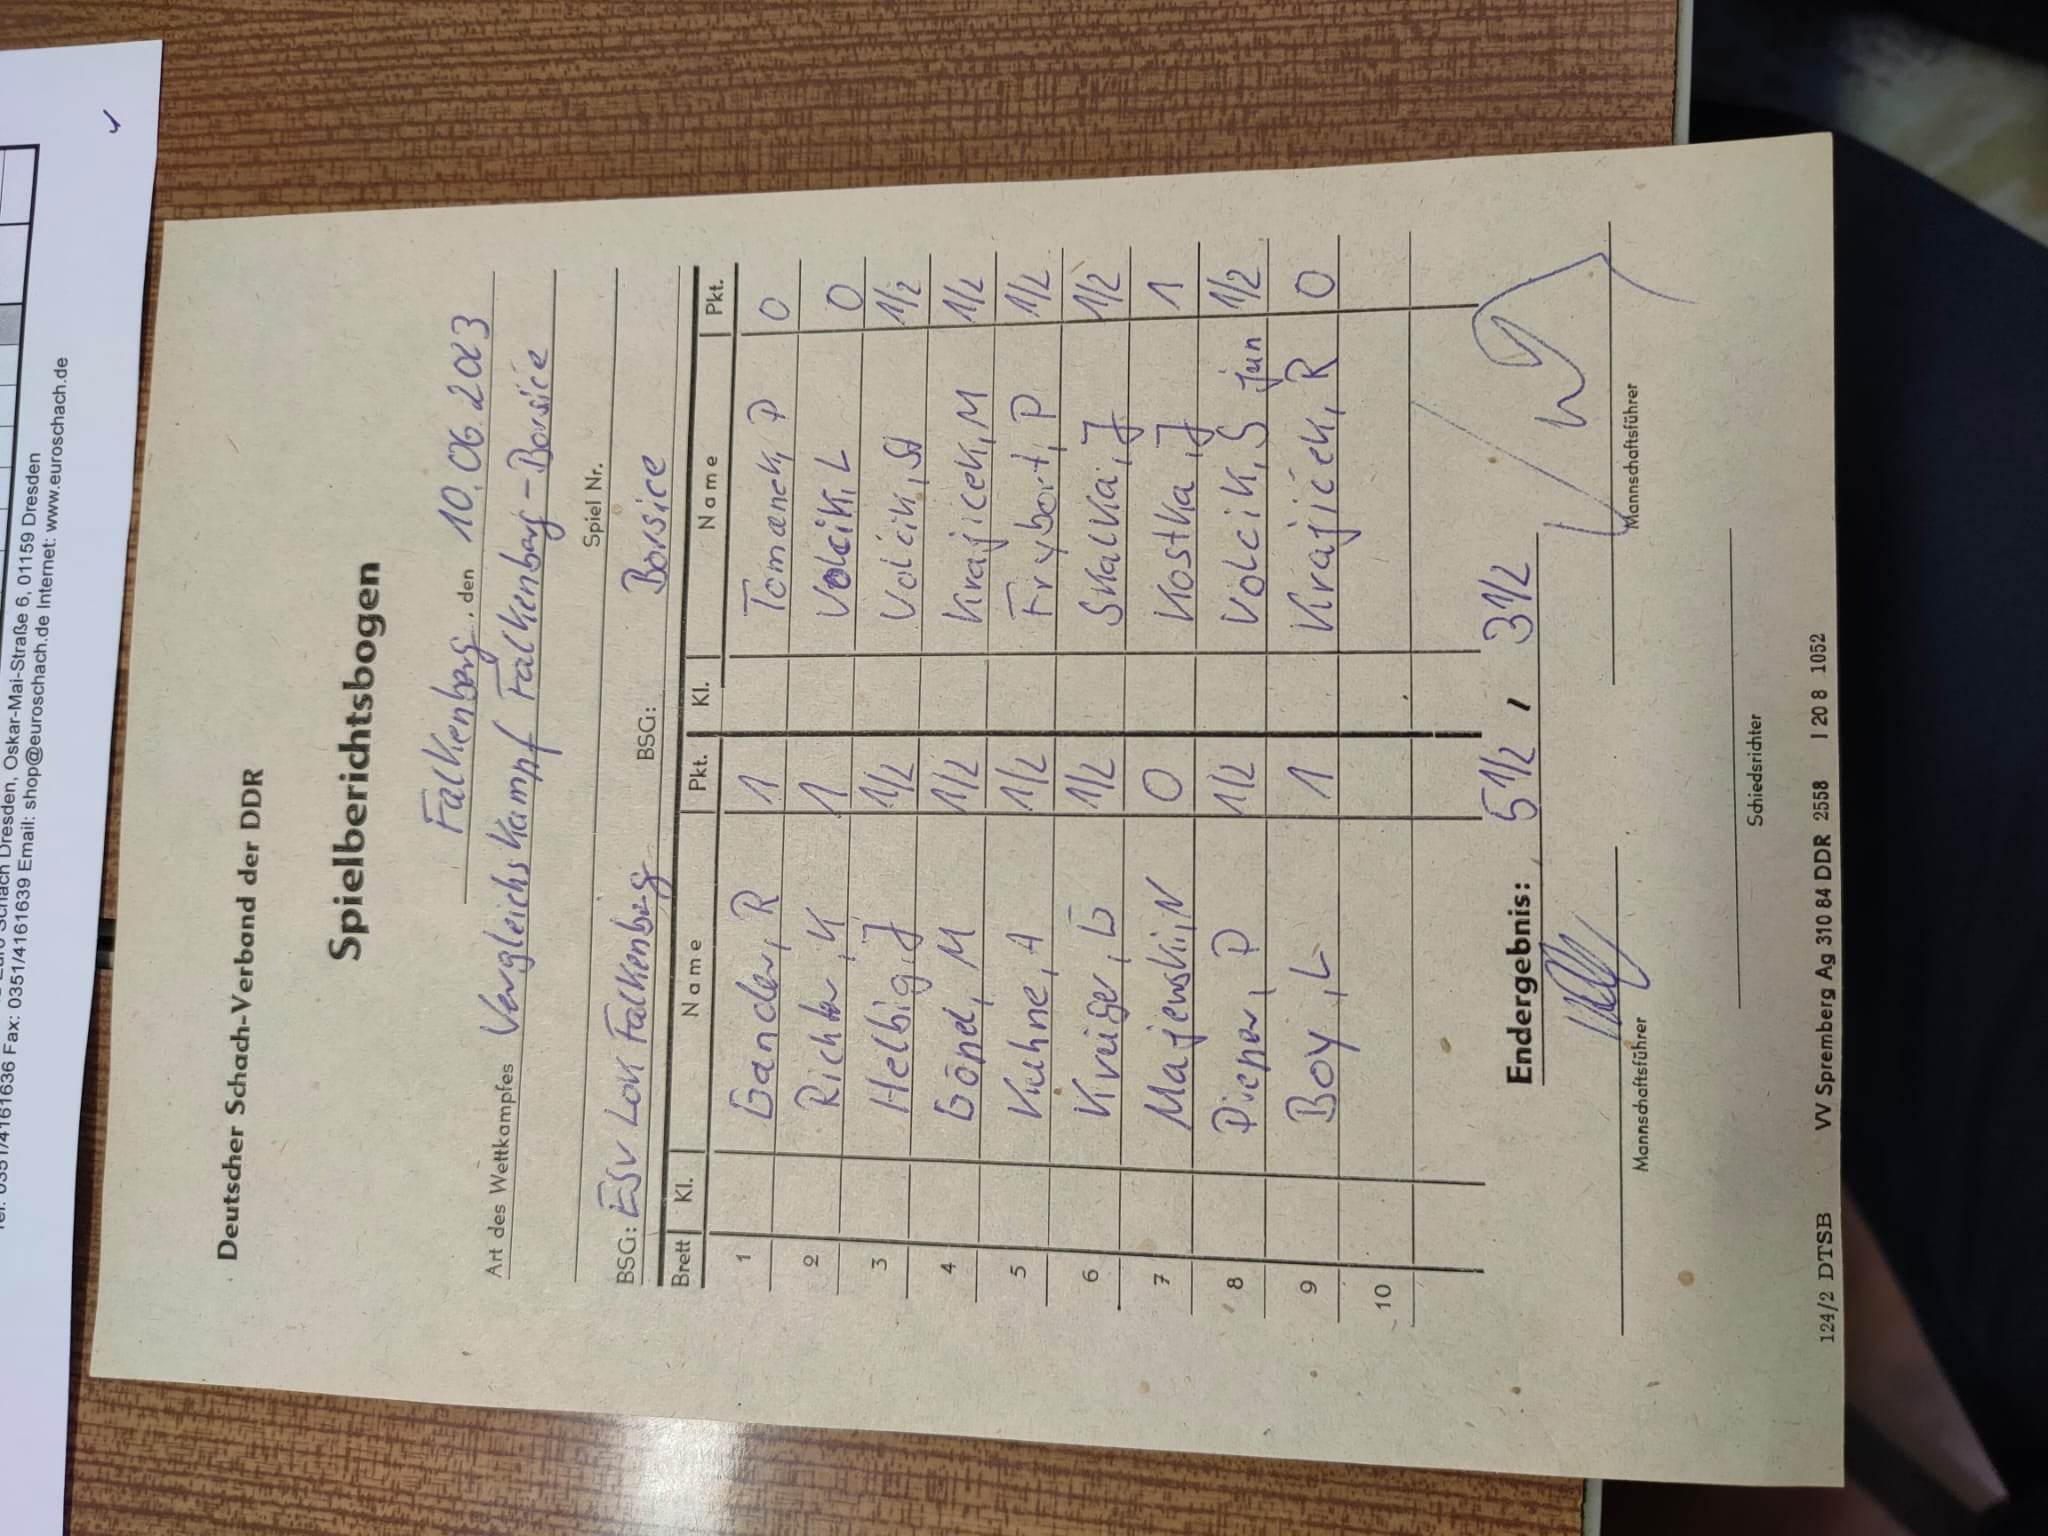 Dresden, Oskar-Mai-Straße 6, 01159 Dresden
Fax: 0351/4161639 Email: shop@euroschach.de Internet: www.euroschach.de
Deutscher Schach-Verband der DDR
Spielberichtsbogen
Falkenberg, den 10.06.2023
Art des Wettkampfes Vergleichskampf Falkenberg - Borsice
Spiel Nr.
BSG: ESV Lok Falkenberg BSG: Borsice
Brett Kl. Name Pkt. Kl. Name Pkt.
1 Gander, R 1 Tomanek, P 0
2 Richter, K 1 Volcik, L 0
3 Helbig, J 1/2 Volcik, St 1/2
4 M 1/2 Krajicek, M 1/2
5 Kuhne, A 1/2 Frybort, P 1/2
6 Krüger, G 1/2 Skalka, J 1/2
7 Majewski, N 0 Kostka, J 1
8 Pieper, P 1/2 Volcik, S jun 1/2
9 Boy, L 1 Krajicek, R 0
10
Endergebnis: 5 1/2 , 3 1/2
Mannschaftsführer Mannschaftsführer
Schiedsrichter
124/2 DTSB VV Spremberg Ag 310 84 DDR 2558 I 20 8 1052